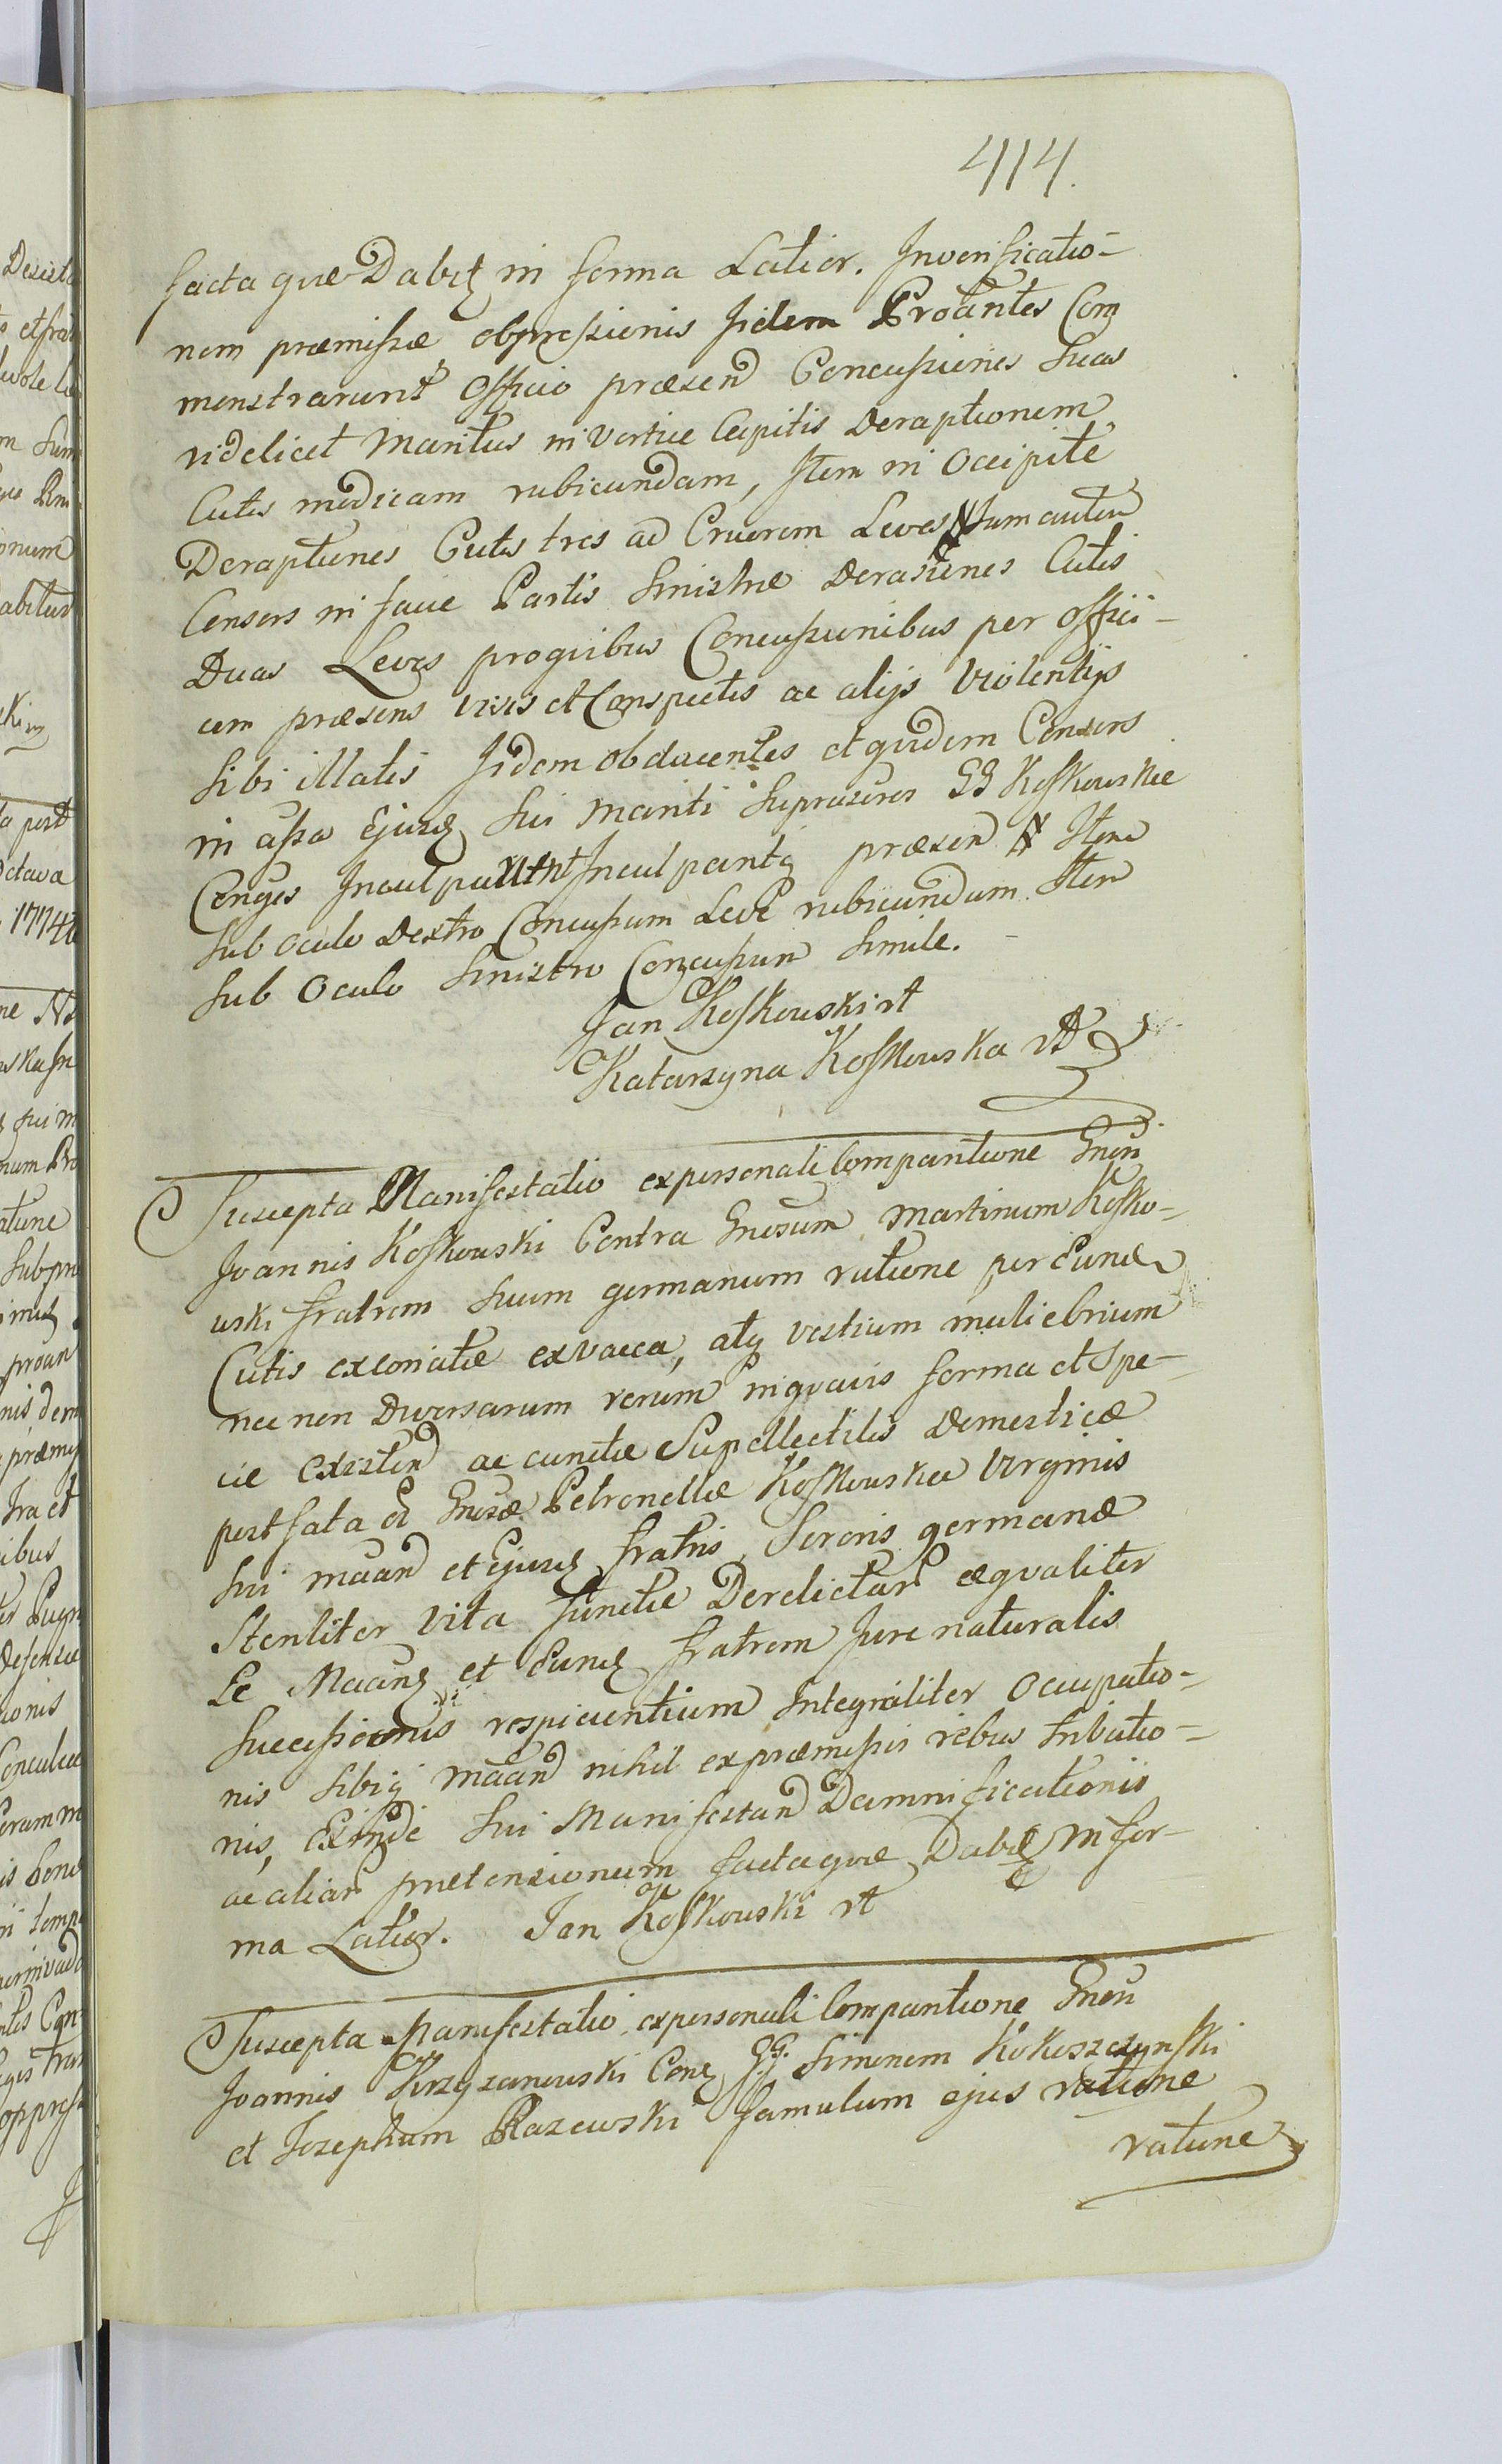 414.
facta quæ Dabitz in forma Latior. Inverificatio-
nem præmissæ obpressionis Iidem Proãntes Com
monstrarunt Officio præsen Concussiones Suas
videlicet Maritus in Vertice Capitis Deraptionem
Cutis modicam rubicundam, Item in Occipite
Deraptiones Cutis tres ad Cruorem Leves Tum autem
Consors in facie Partis Sinistræ Derasiones Cutis
Duas Leves proquibus Concussionibus per Offici-
um præsens visis et Conspectis ac alijs Violentijs
Sibi illatis Iidem obducentes et quidem Consors
in assa Ejusd Sui Mariti Suprascros GG Koskowskie
Conges Inculparunt Inculpantq præsen Item
Sub oculo Dextro Concussum Leve rubicundum Item
Sub Oculo Sinistro Concussum Simile.
Jan Koskowski rt
Katarzyna Koskowska rt
Suscepta Manifestatio ex personali Comparitione Gnsi
Joannis Koskowski Contra Gnosum Martinum Kosko-
wski fratrem Suum germanum ratione per Eund
Cutis excoriatæ ex vacca, atq vestium muliebrium
nec non Diversarum rerum inquavis forma et Spe-
cie Existen ac cunctæ Supellectilis Domesticæ
post fata ol Gnosæ Petronellæ Koskowskie Virginis
Sui maãn et Ejusd fratris Sororis germanæ
Steriliter Vita functæ Derelictar æqualiter
Se Maãn et Eund fratrem Jure naturalis
Successionis respicientium Integraliter Occupatio-
nis Sibiq maãn nihil expræmissis rebus tributio-
nis, Exinde Sui Manifestan Damnificationis
ac aliar prætensionum facta quæ Dabit in for-
ma Latior. Jan Koskowski rt
Suscepta Manifestatio ex personali Comparitione Gnsi
Joannis Krzyzanowski Con GG. Simonem Kokoszczynski
et Josephum Razewski famulum ejus ratione
ratione